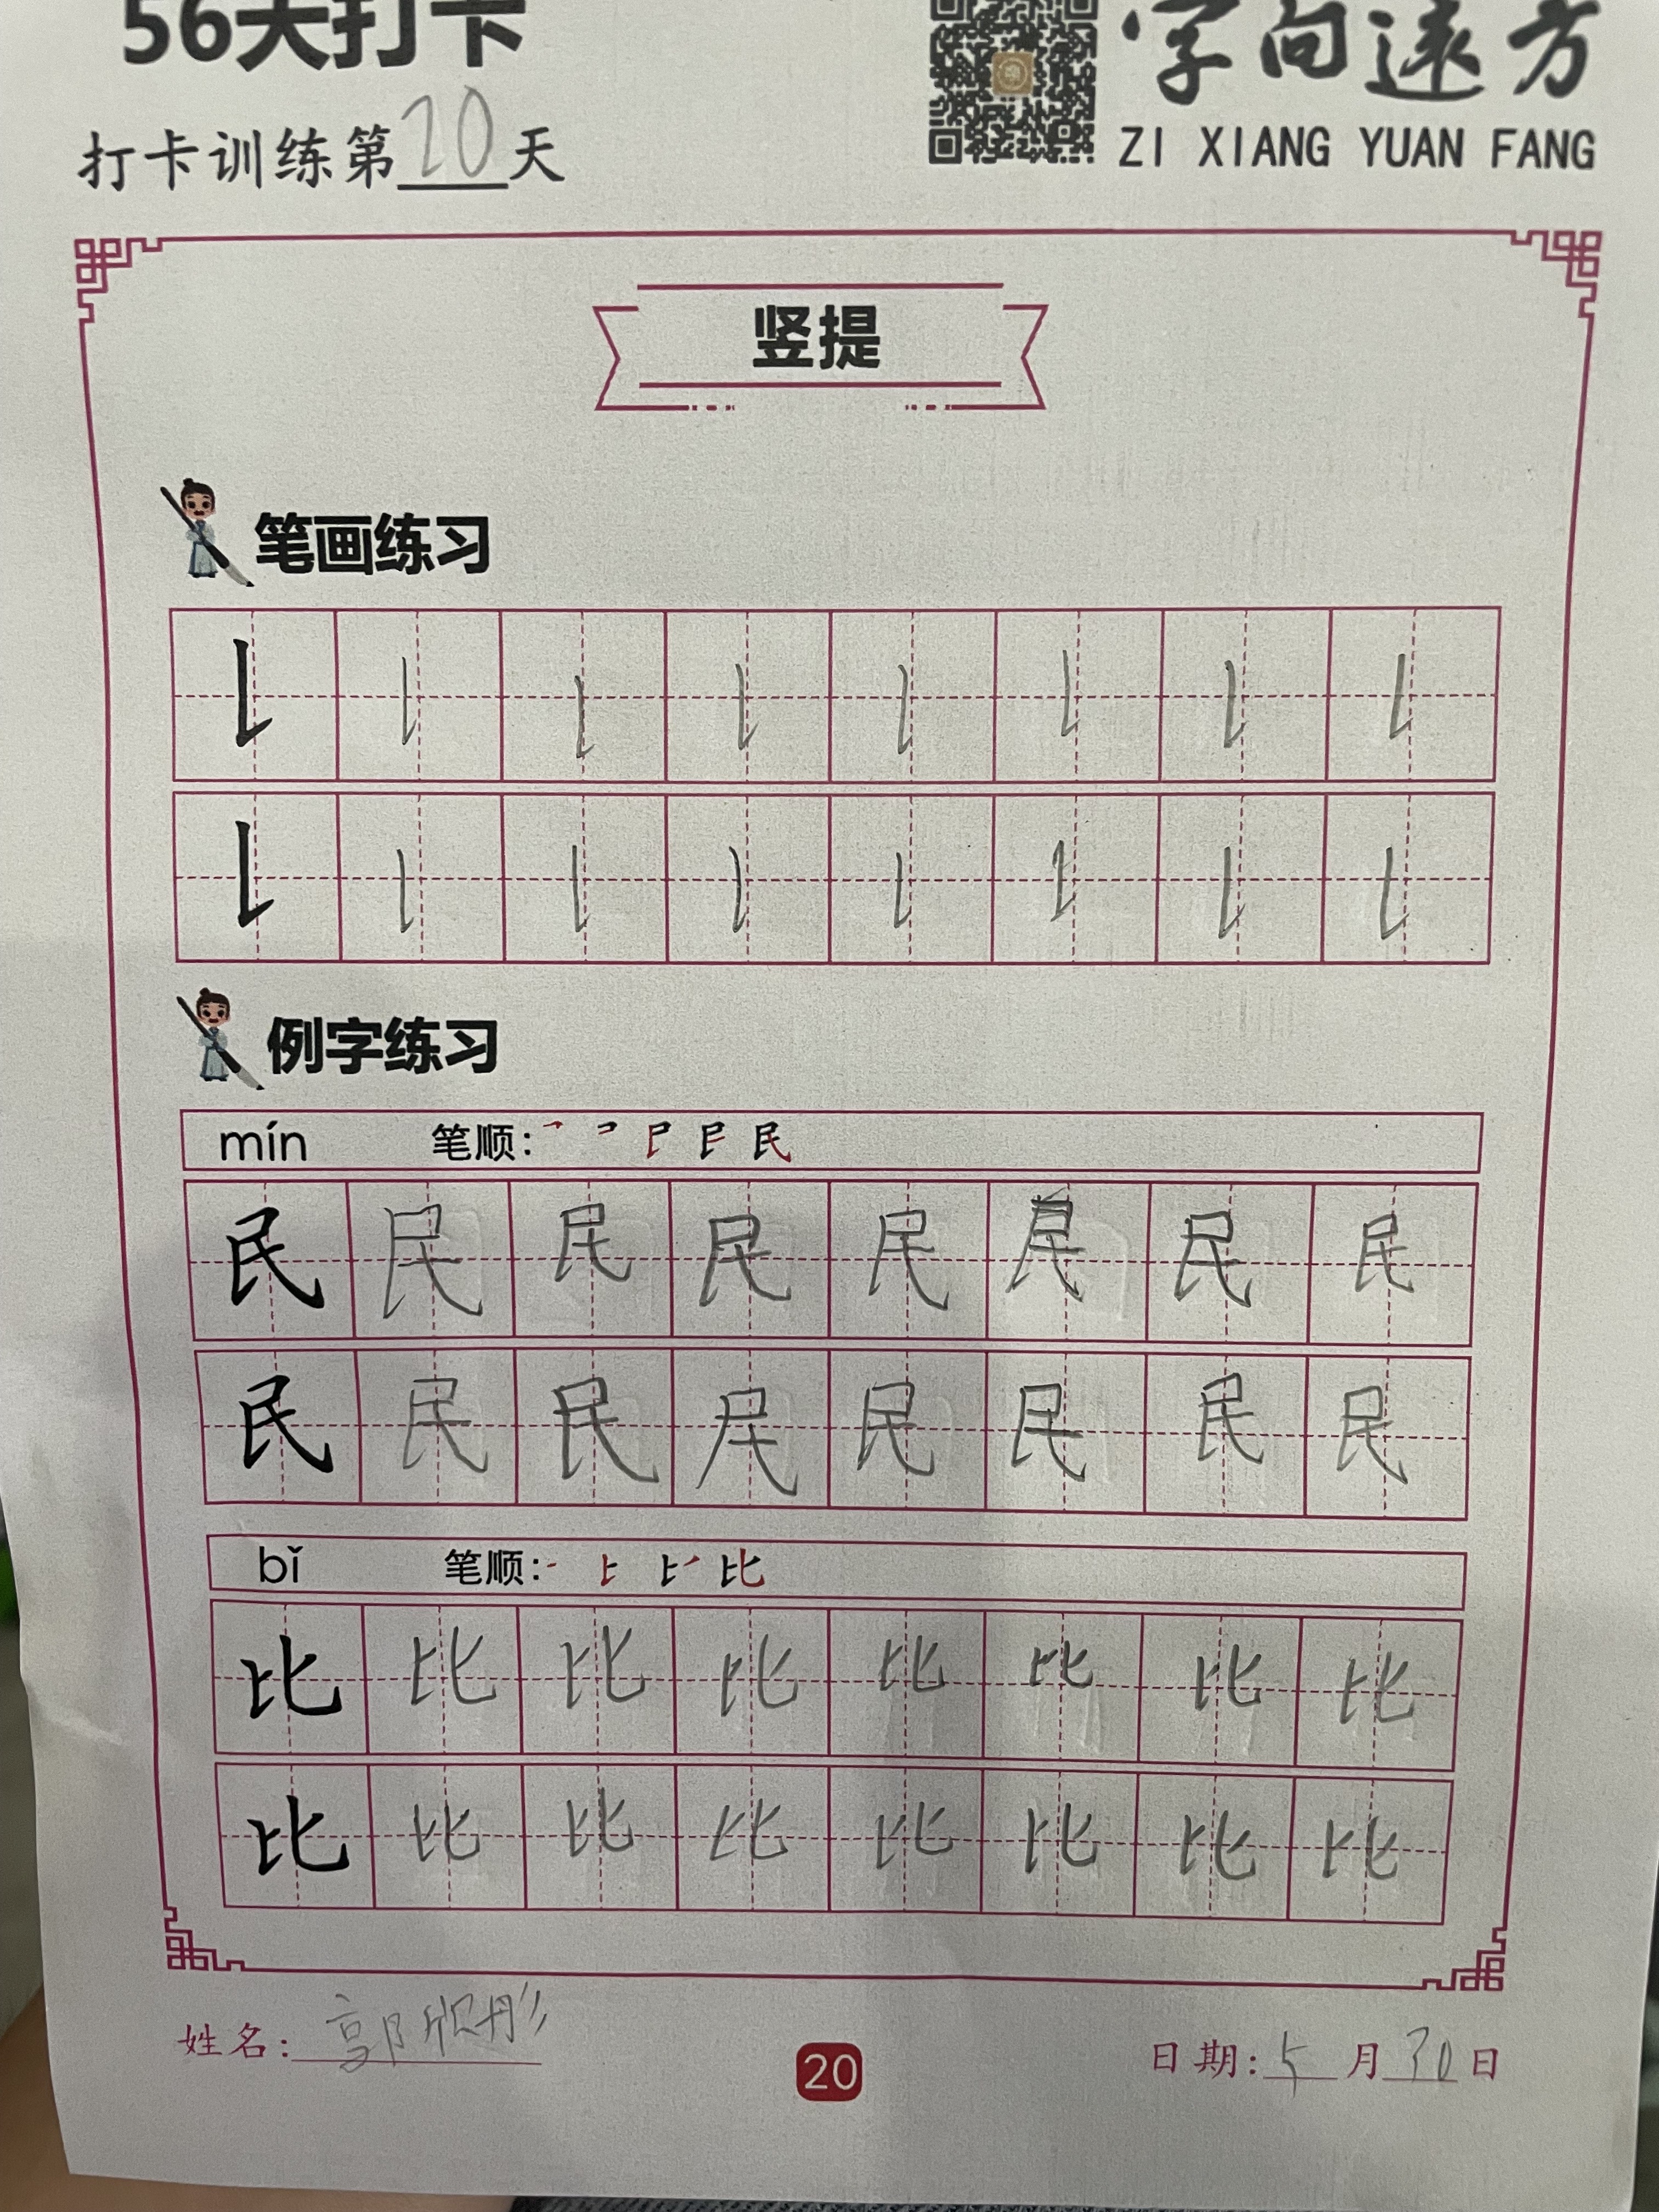 56天打卡
字向远方
打卡训练第20天
ZI XIANG YUAN FANG
竖提
笔画练习
例字练习
mín 笔顺:
民 民 民 民 民 民 民 民
民 民 民 民 民 民 民 民
bǐ 笔顺:
比 比 比 比 比 比 比 比
比 比 比 比 比 比 比 比
姓名: 郭 彤
20
日期: 5月30日